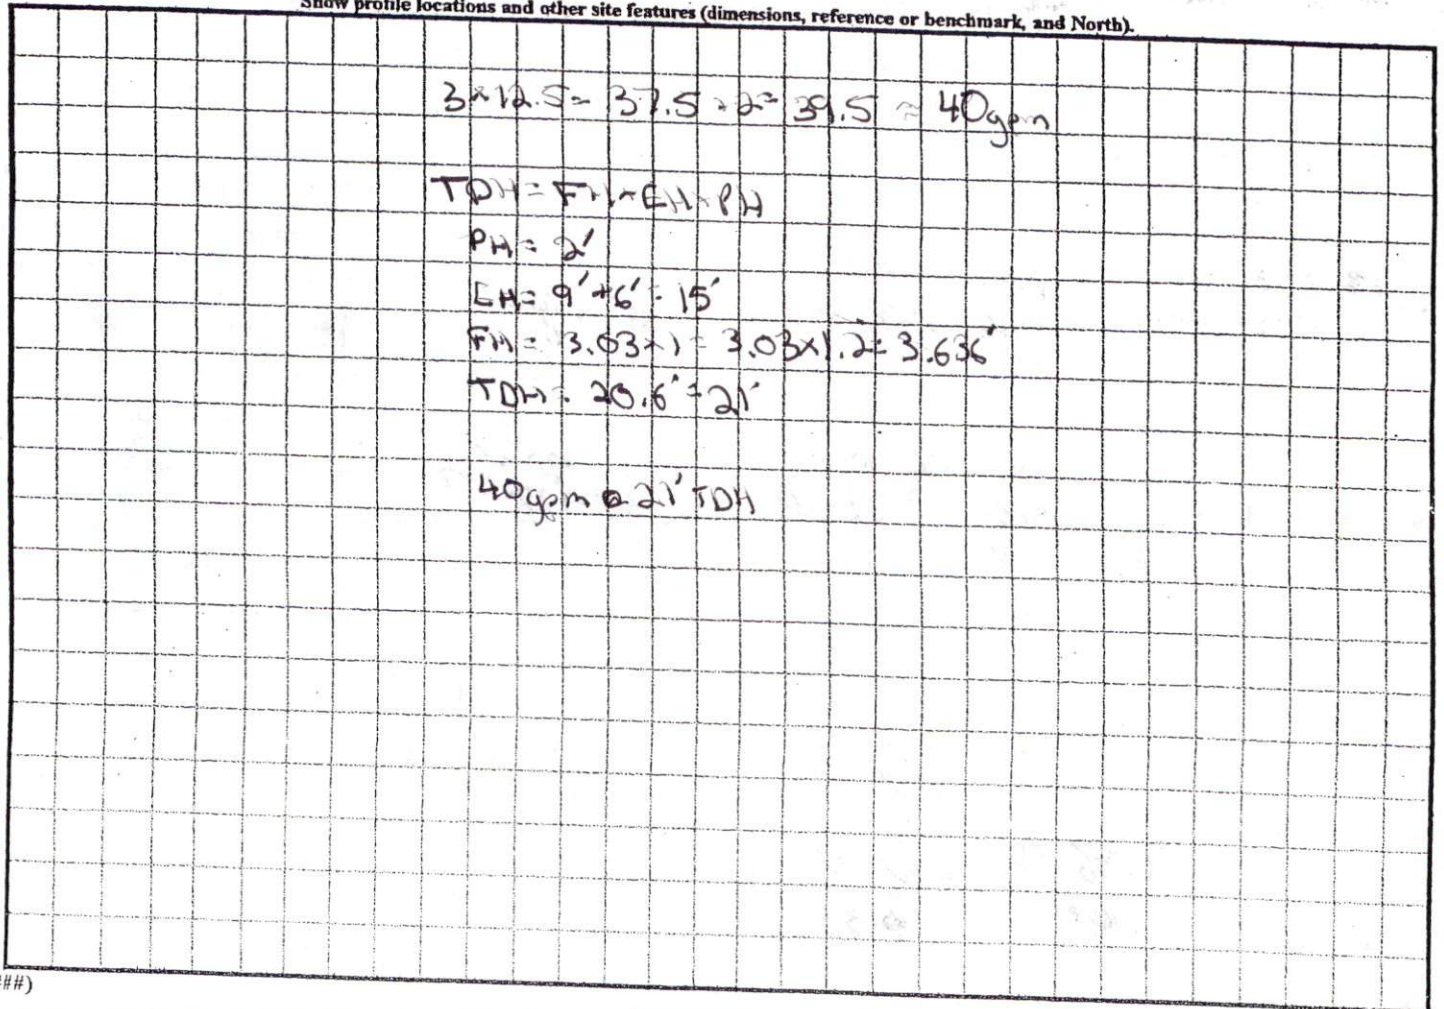 Show profile locations and other site features (dimensions, reference or benchmark, and North).
3×12.5= 37.5 + 2= 39.5 ≈ 40gpm
TDH= FH+EH+PH
PH= 2'
EH= 9'+6'= 15'
FH= 3.03×1= 3.03×1.2= 3.636'
TDH= 20.6'= 21'
40gpm @ 21' TDH
##)